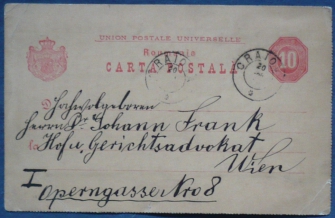 UNION POSTALE UNIVERSELLE
România
CARTA POSTALA
10
CRAIOVA
20
CRAIOVA
20
D
Hochwolgeboren
Herrn Dr Johann Frank
la Hof u. Gerichtsadvokat
Wien
I
Operngasse Nro 8